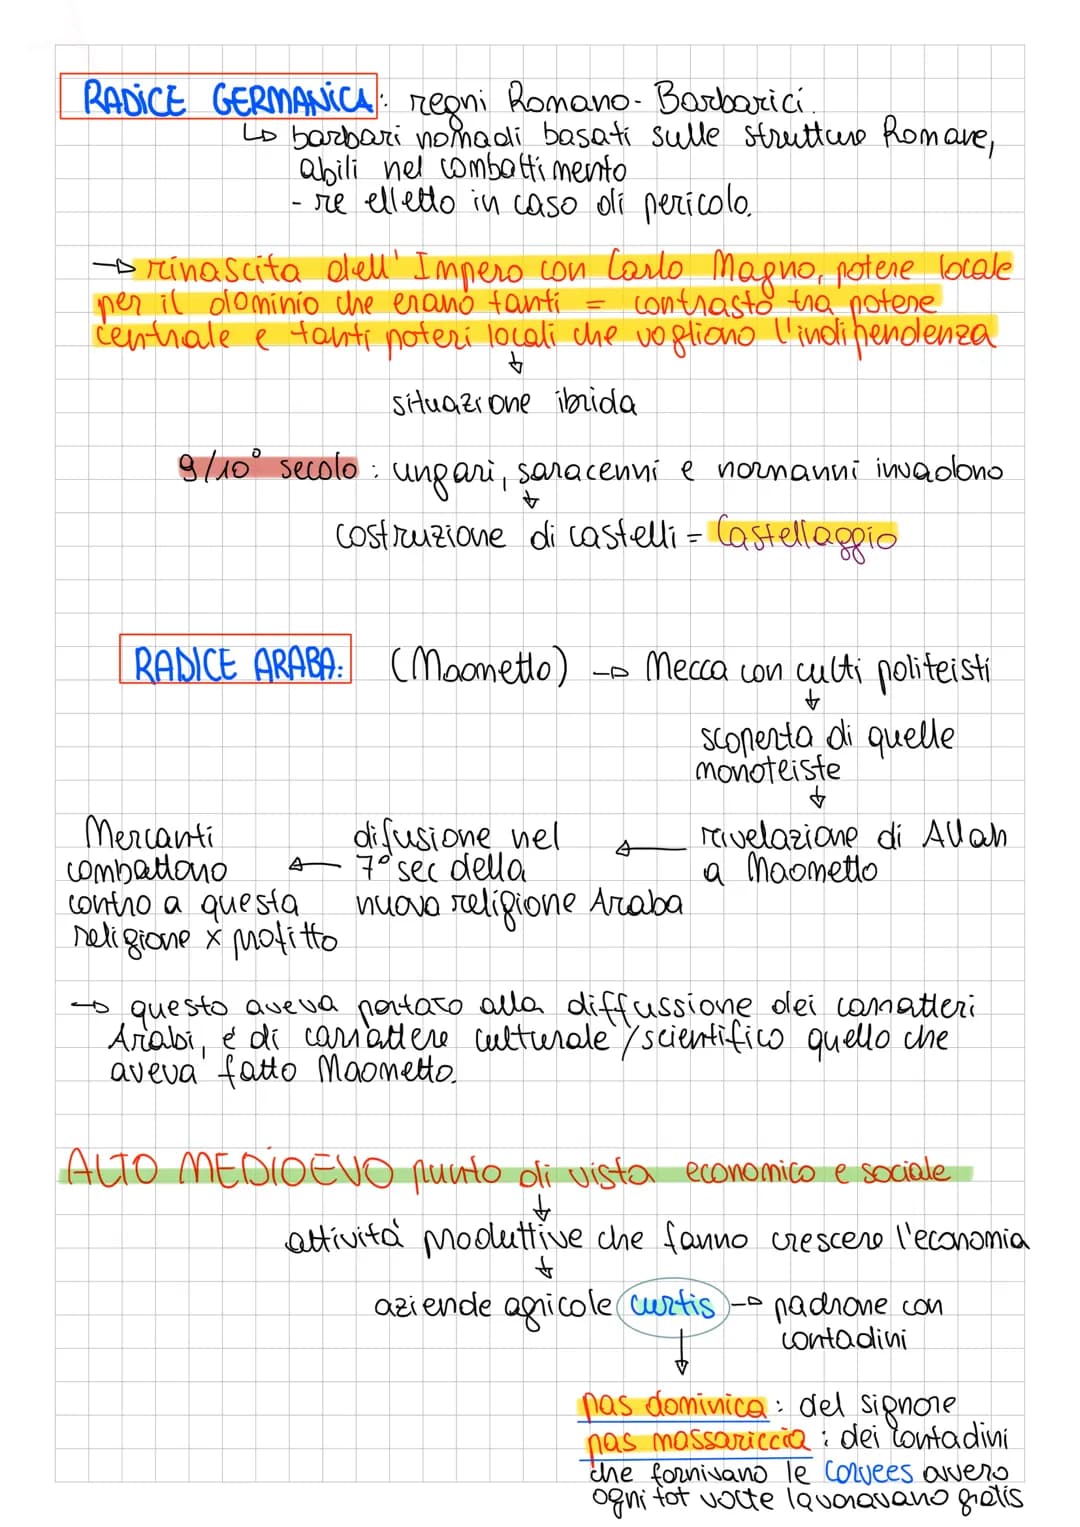 RADICE GERMANICA: regni Romano-Barbarici.
↳ barbari nomadi basati sulle strutture Romane,
abili nel combattimento
- re elletto in caso di pericolo.
→ rinascita dell'Impero con Carlo Magno, potere locale
per il dominio che erano tanti = contrasto tra potere
centrale e tanti poteri locali che vogliono l'indipendenza
↓
situazione ibrida
9/10° secolo: ungari, saracenni e normanni invadono
↓
costruzione di castelli = Castellaggio
RADICE ARABA: (Maometto) → Mecca con culti politeisti
↓
scoperta di quelle
monoteiste
↓
rivelazione di Allah
a Maometto
←
difusione nel
7° sec della
nuova religione Araba
←
Mercanti
combattono
contro a questa
religione x profitto
→ questo aveva portato alla diffussione dei caratteri
Arabi, è di carattere culturale/scientifico quello che
aveva fatto Maometto.
ALTO MEDIOEVO punto di vista economico e sociale
↓
attività produttive che fanno crescere l'economia
↓
aziende agricole curtis → padrone con
contadini
↓
pas dominica: del signore
pas massariccia: dei contadini
che fornivano le corvees ovvero
ogni tot volte lavoravano gratis